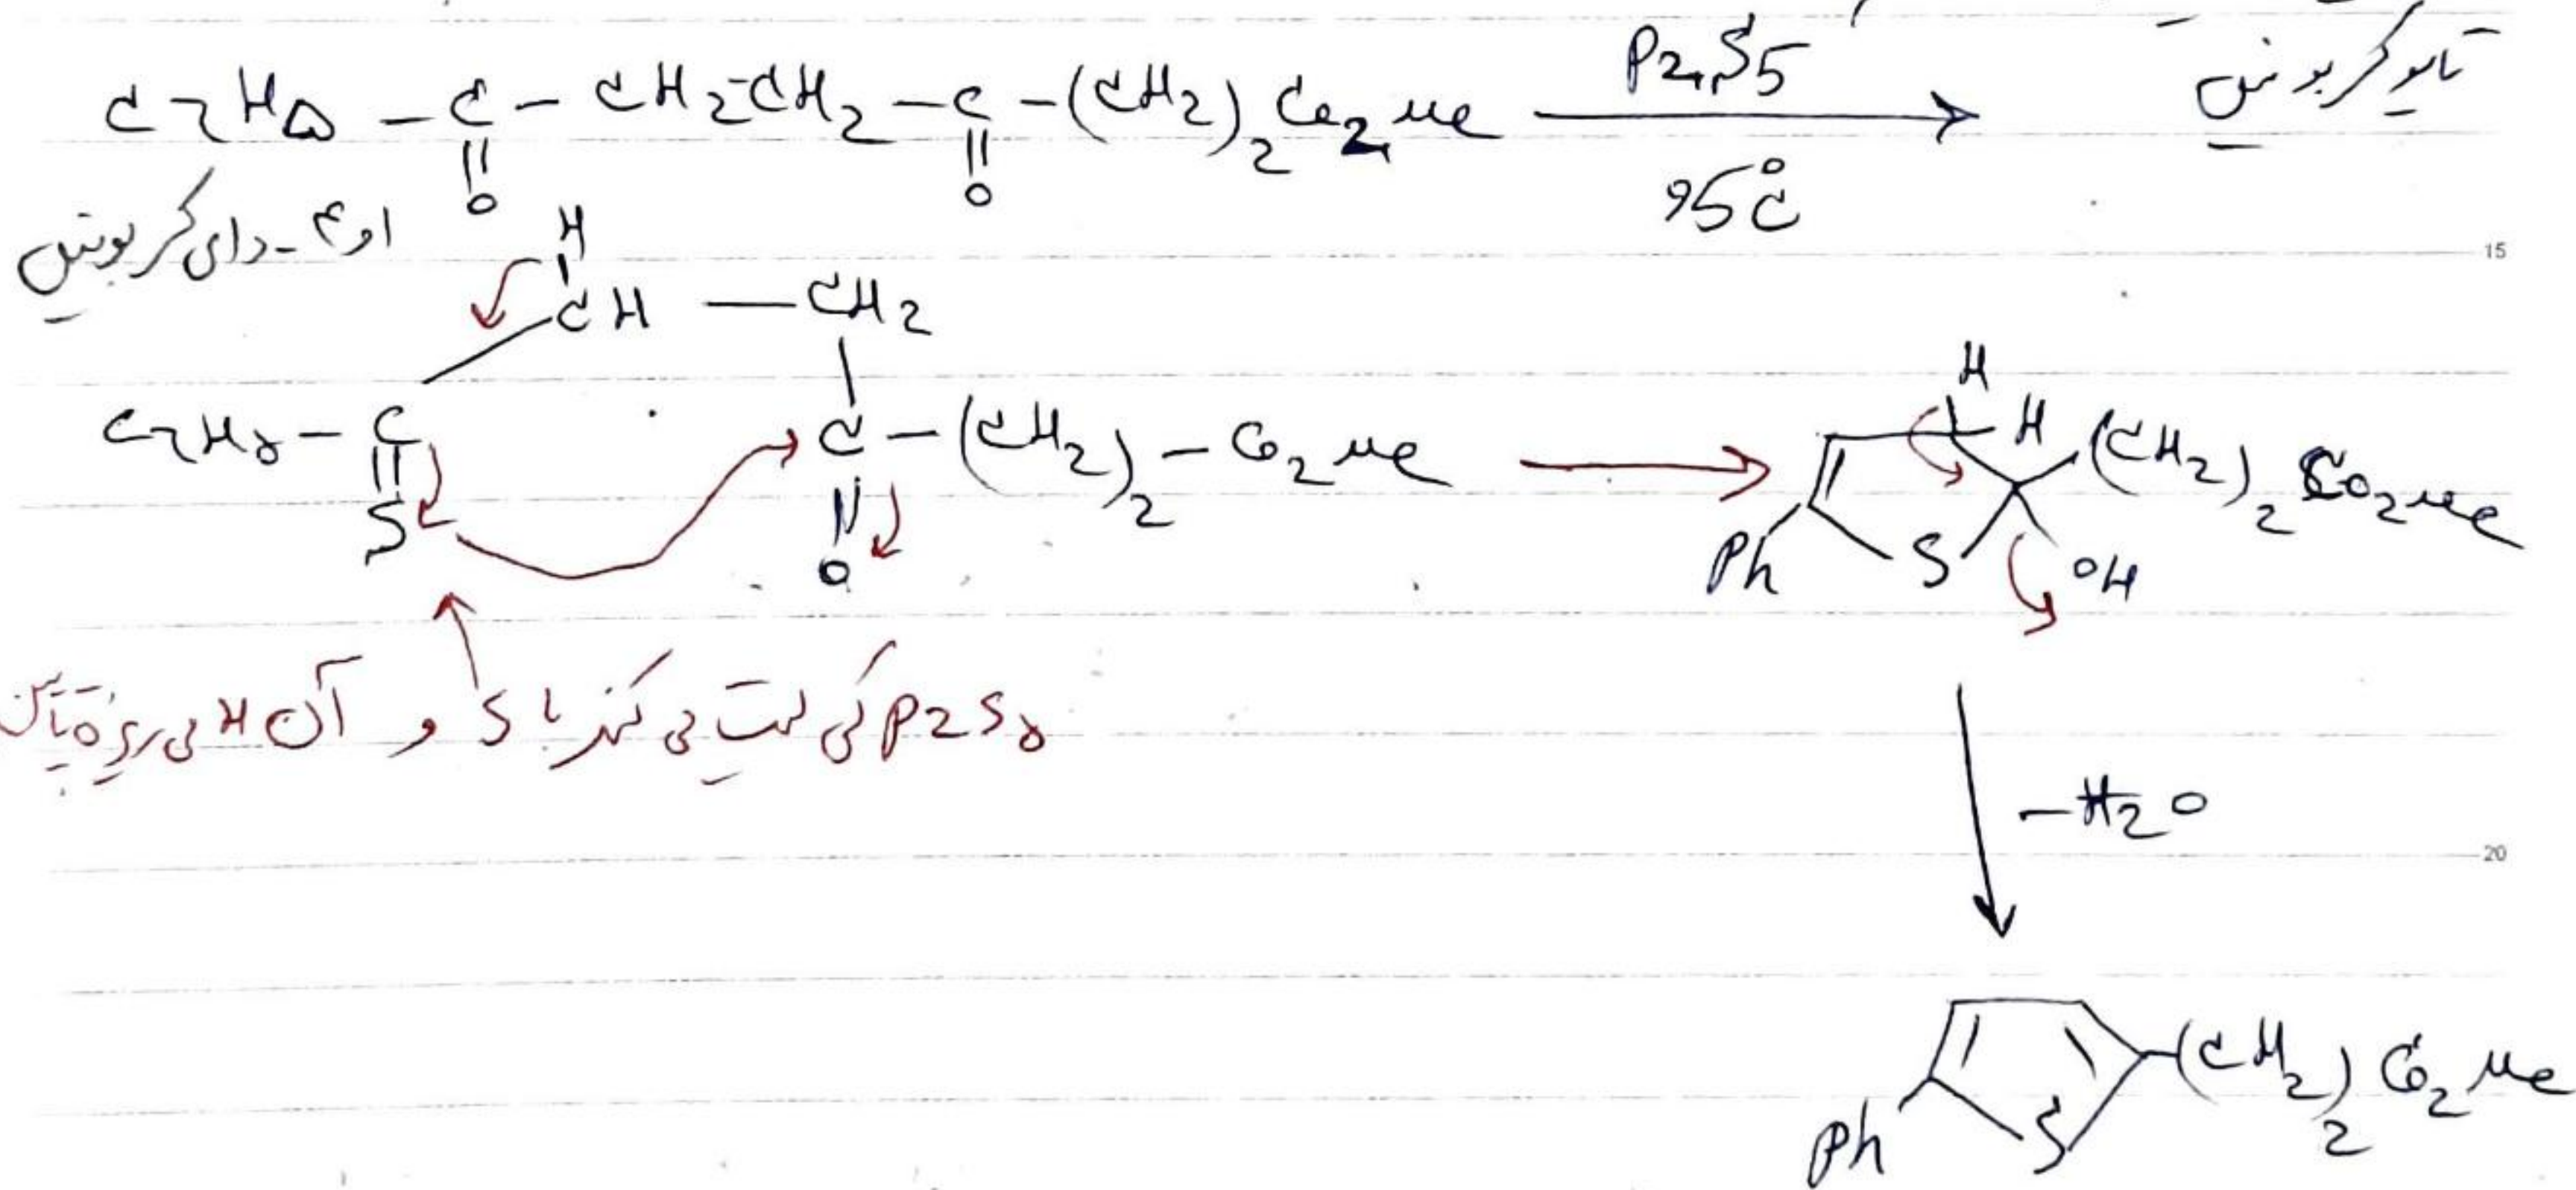 C6H5 – C – CH2 – CH2 – C – (CH2)2 CO2Me P2S5 تایوکربونیل
O O 95°C
او۴ - دای کربونیل
H
CH — CH2
C6H5 – C C – (CH2)2 – CO2Me H H (CH2)2 CO2Me
S O Ph S OH
15
P2S5 کی لیت می کند با S و آن H می ریزه
–H2O
20
(CH2)2 CO2Me
Ph S